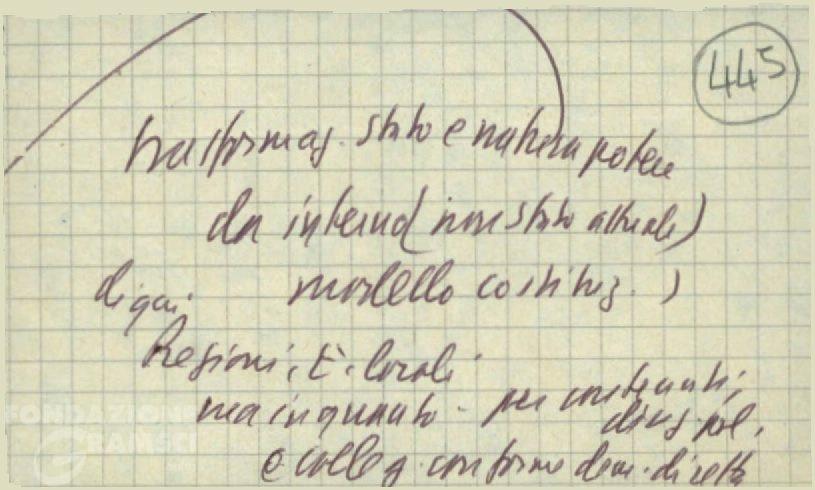 445
trasformaz. stato e natura potere
da interno (non stato attuale)
di qui modello costituz. )
Regioni, E. locali
ma in quanto - per contenuti,
e colleg. con forme dem. diretta
FONDAZIONE
GRAMSCI